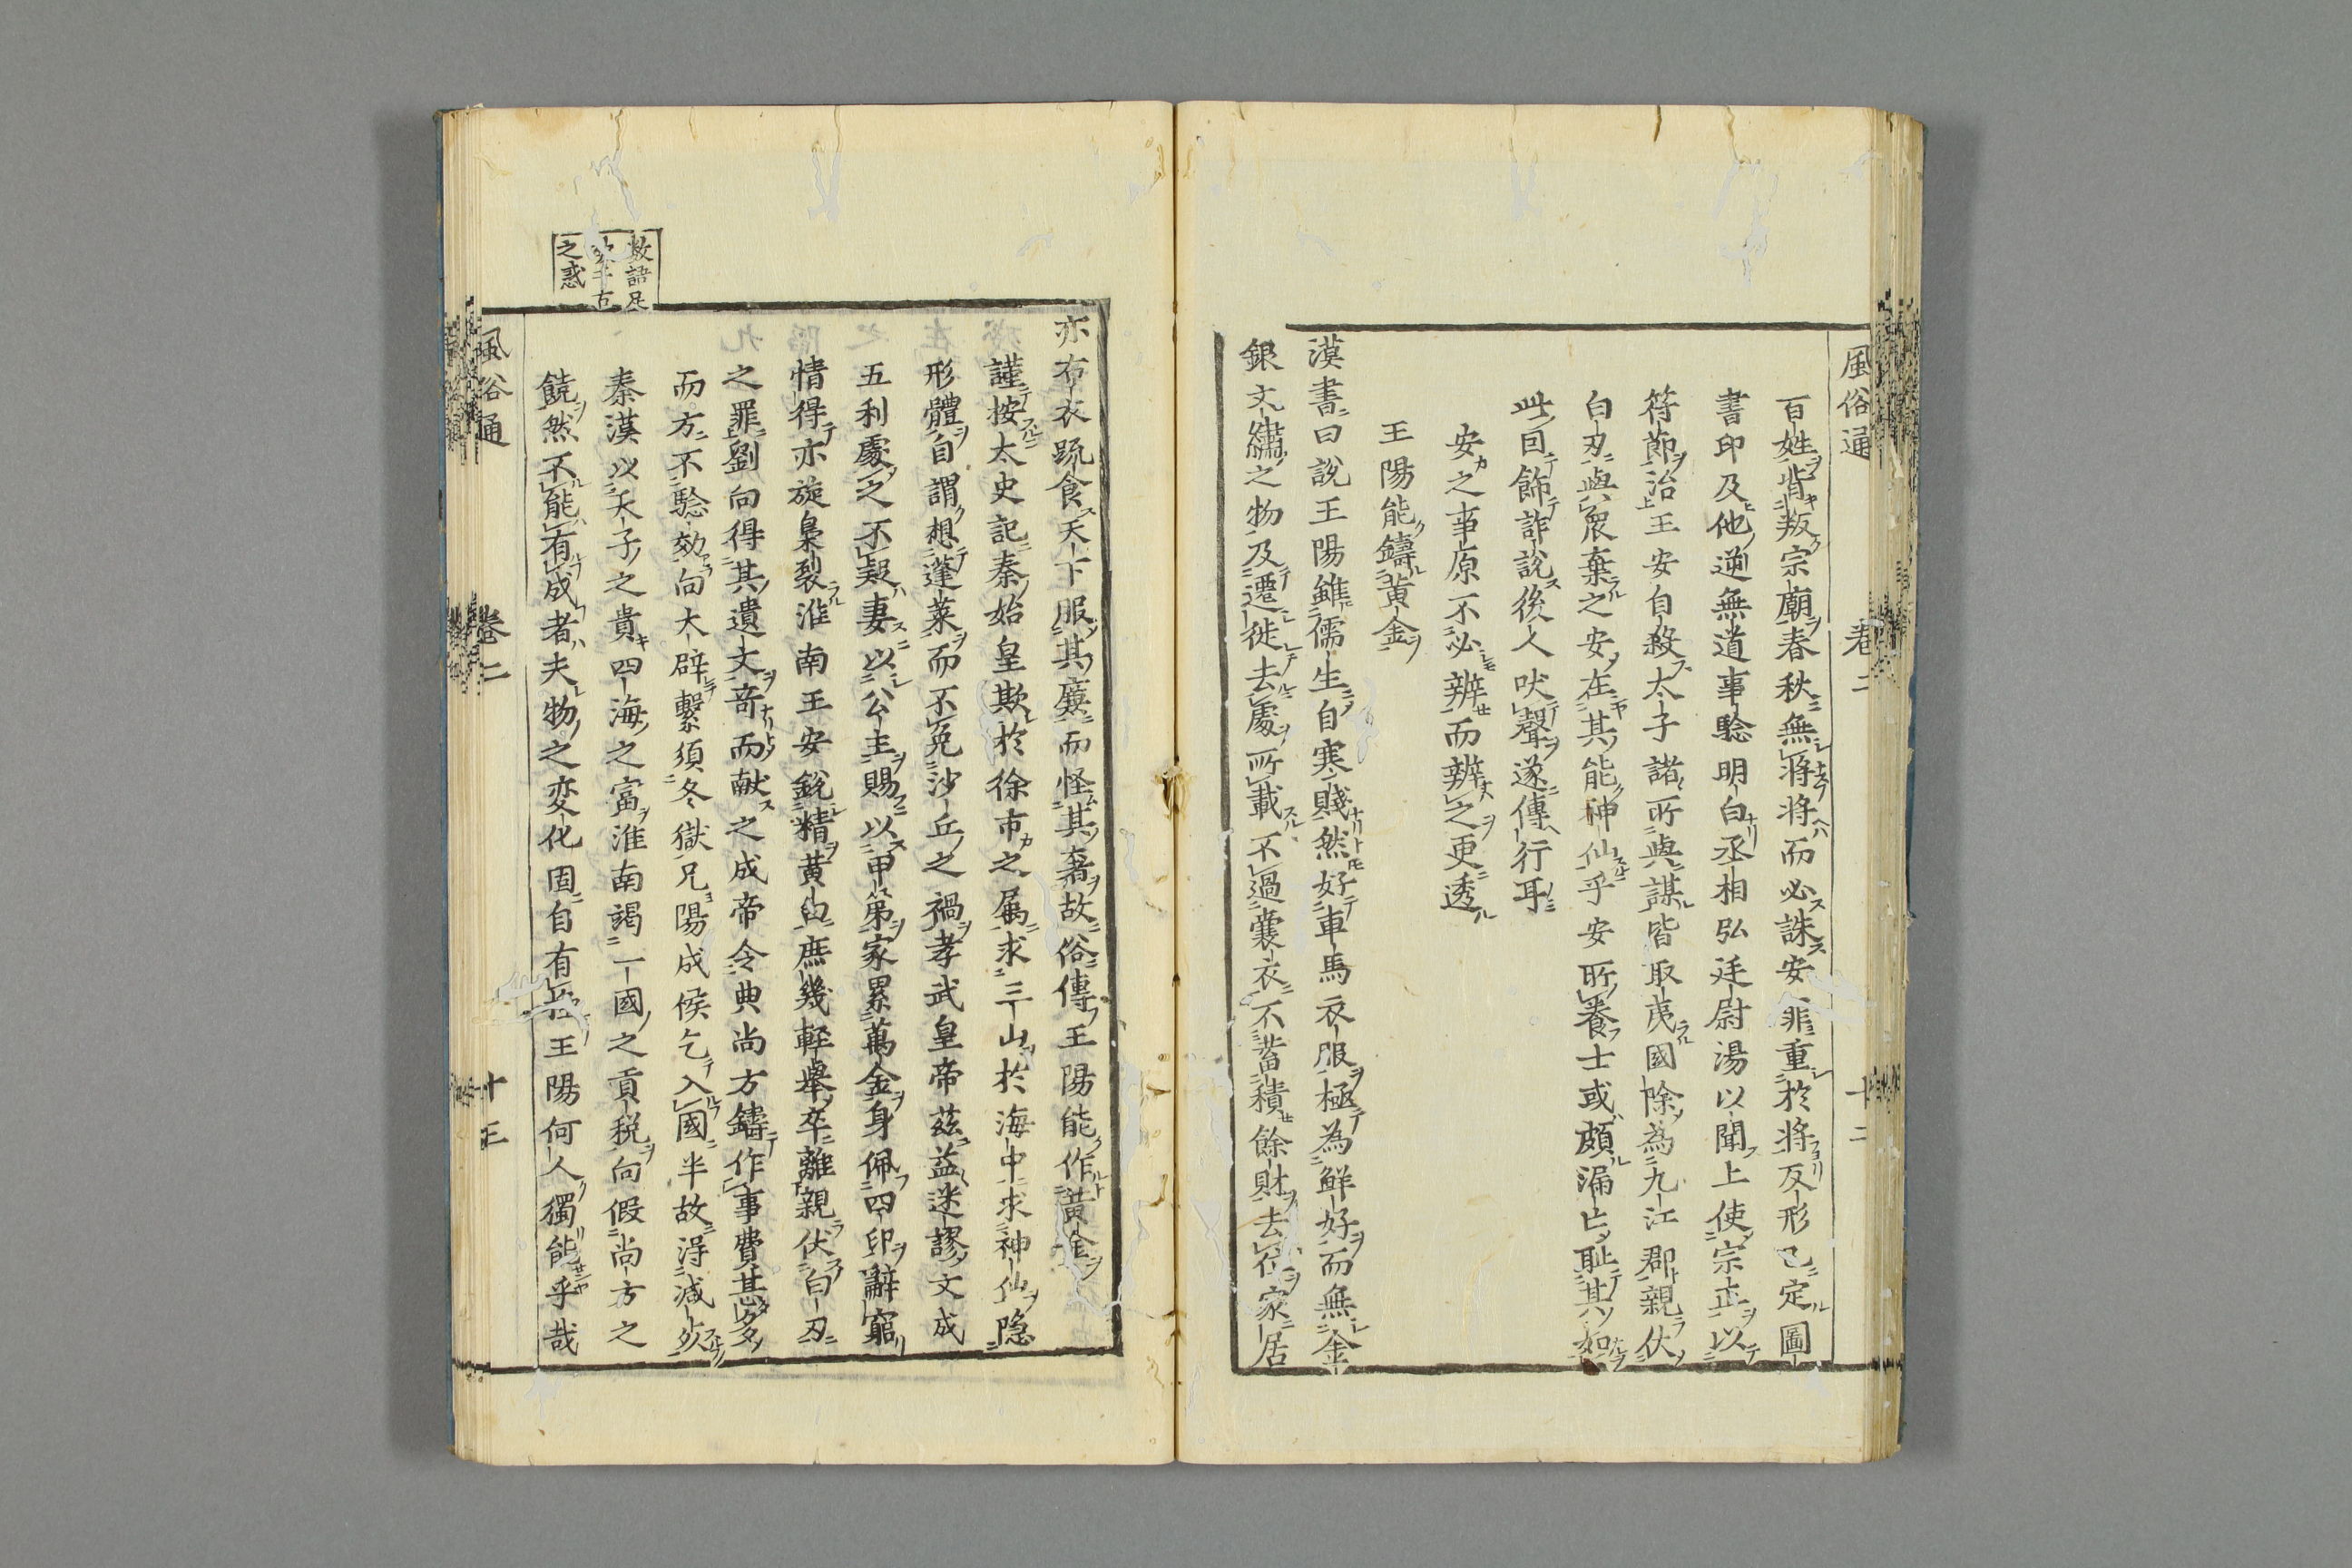 風俗通 卷二 十二
百姓背叛宗廟春秋無將將而必誅安罪重於將反形已定圖
書印及他逆無道事驗明白丞相弘廷尉湯以聞上使宗正以
符節治王安自殺太子諸所與謀皆取夷國除為九江郡親伏
白刃與衆棄之安在其能神仙乎安所養士或頗漏亡耻其如
此因飾詐說後人吠聲遂傳行耳
安之事原不必辨而辨之更透
王陽能鑄黄金
漢書曰說王陽雖儒生自寒賤然好車馬衣服極為鮮好而無金
銀文繡之物及遷徙去處所載不過囊衣不蓄積餘財去位家居
亦布衣䟽食天下服其廉而怪其奢故俗傳王陽能作黄金
謹按太史記秦始皇欺於徐市之屬求三山於海中求神仙隐
形體自謂想蓬莱而不免沙丘之禍孝武皇帝茲益迷謬文成
五利處之不疑妻以公主賜以甲第家累萬金身佩四印辭窮
情得亦旋梟裂淮南王安銳精黄白庶幾軽舉卒離親伏白刃
之罪劉向得其遺文竒而献之成帝令典尚方鑄作事費甚多
而方不驗効向大辟繫須冬獄兄陽成侯乞入國半故淂减死
秦漢以天子之貴四海之富淮南竭一國之貢税向假尚方之
饒然不能有成者夫物之変化固自有極王陽何人獨能乎哉
數語足
千古
之惑
風俗通 卷二 十三